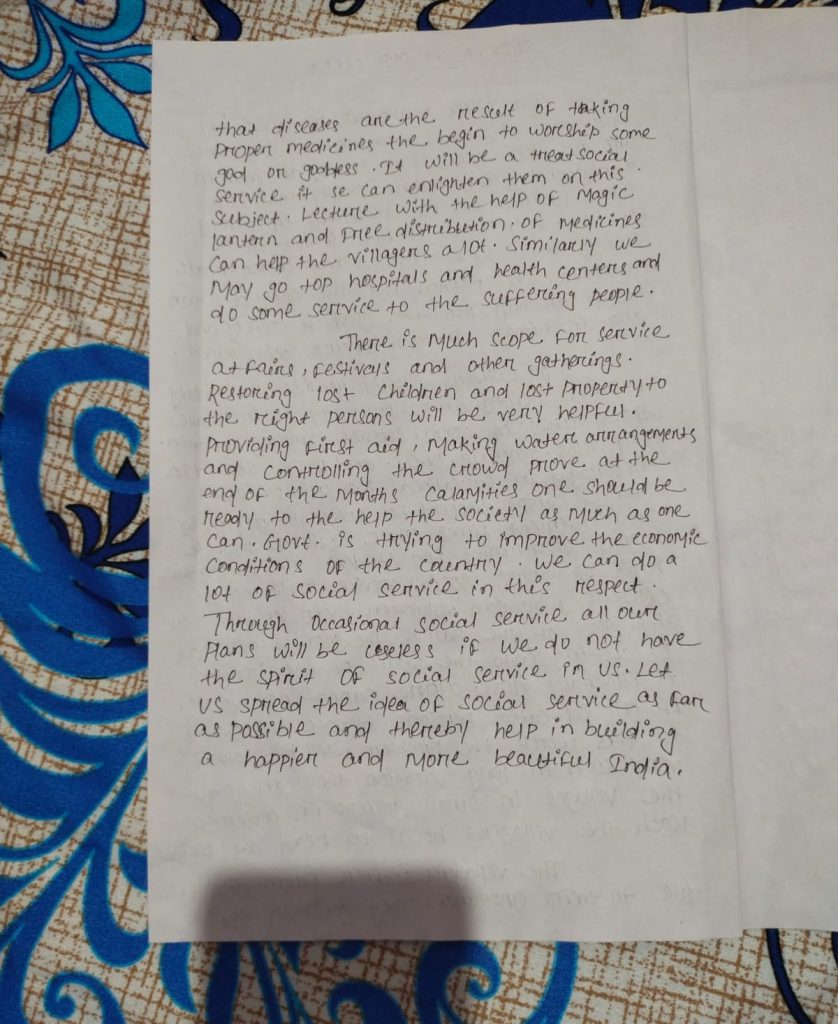 that diseases are the result of taking
Proper medicines the begin to worship some
god or godbless. It will be a treat social
service it se can enlighten them on this
subject. Lecture with the help of Magic
lantern and Free distribution. of Medicines
Can help the villagers a lot. Similarly we
May go top hospitals and health centers and
do some service to the suffering people.
There is Much scope for service
at fairs, festivals and other gatherings.
Restoring lost Children and lost Property to
the right persons will be very helpful.
Providing first aid, Making water arrangements
and Controlling the crowd prove at the
end of the Months Calamities one should be
ready to the help the society as Much as one
Can. Govt. is trying to improve the economic
Conditions of the country. We can do a
lot of social service in this respect.
Through occasional social service all our
Plans will be useless if we do not have
the spirit of social service in us. Let
us spread the idea of social service as far
as possible and thereby help in building
a happier and More beautiful India.